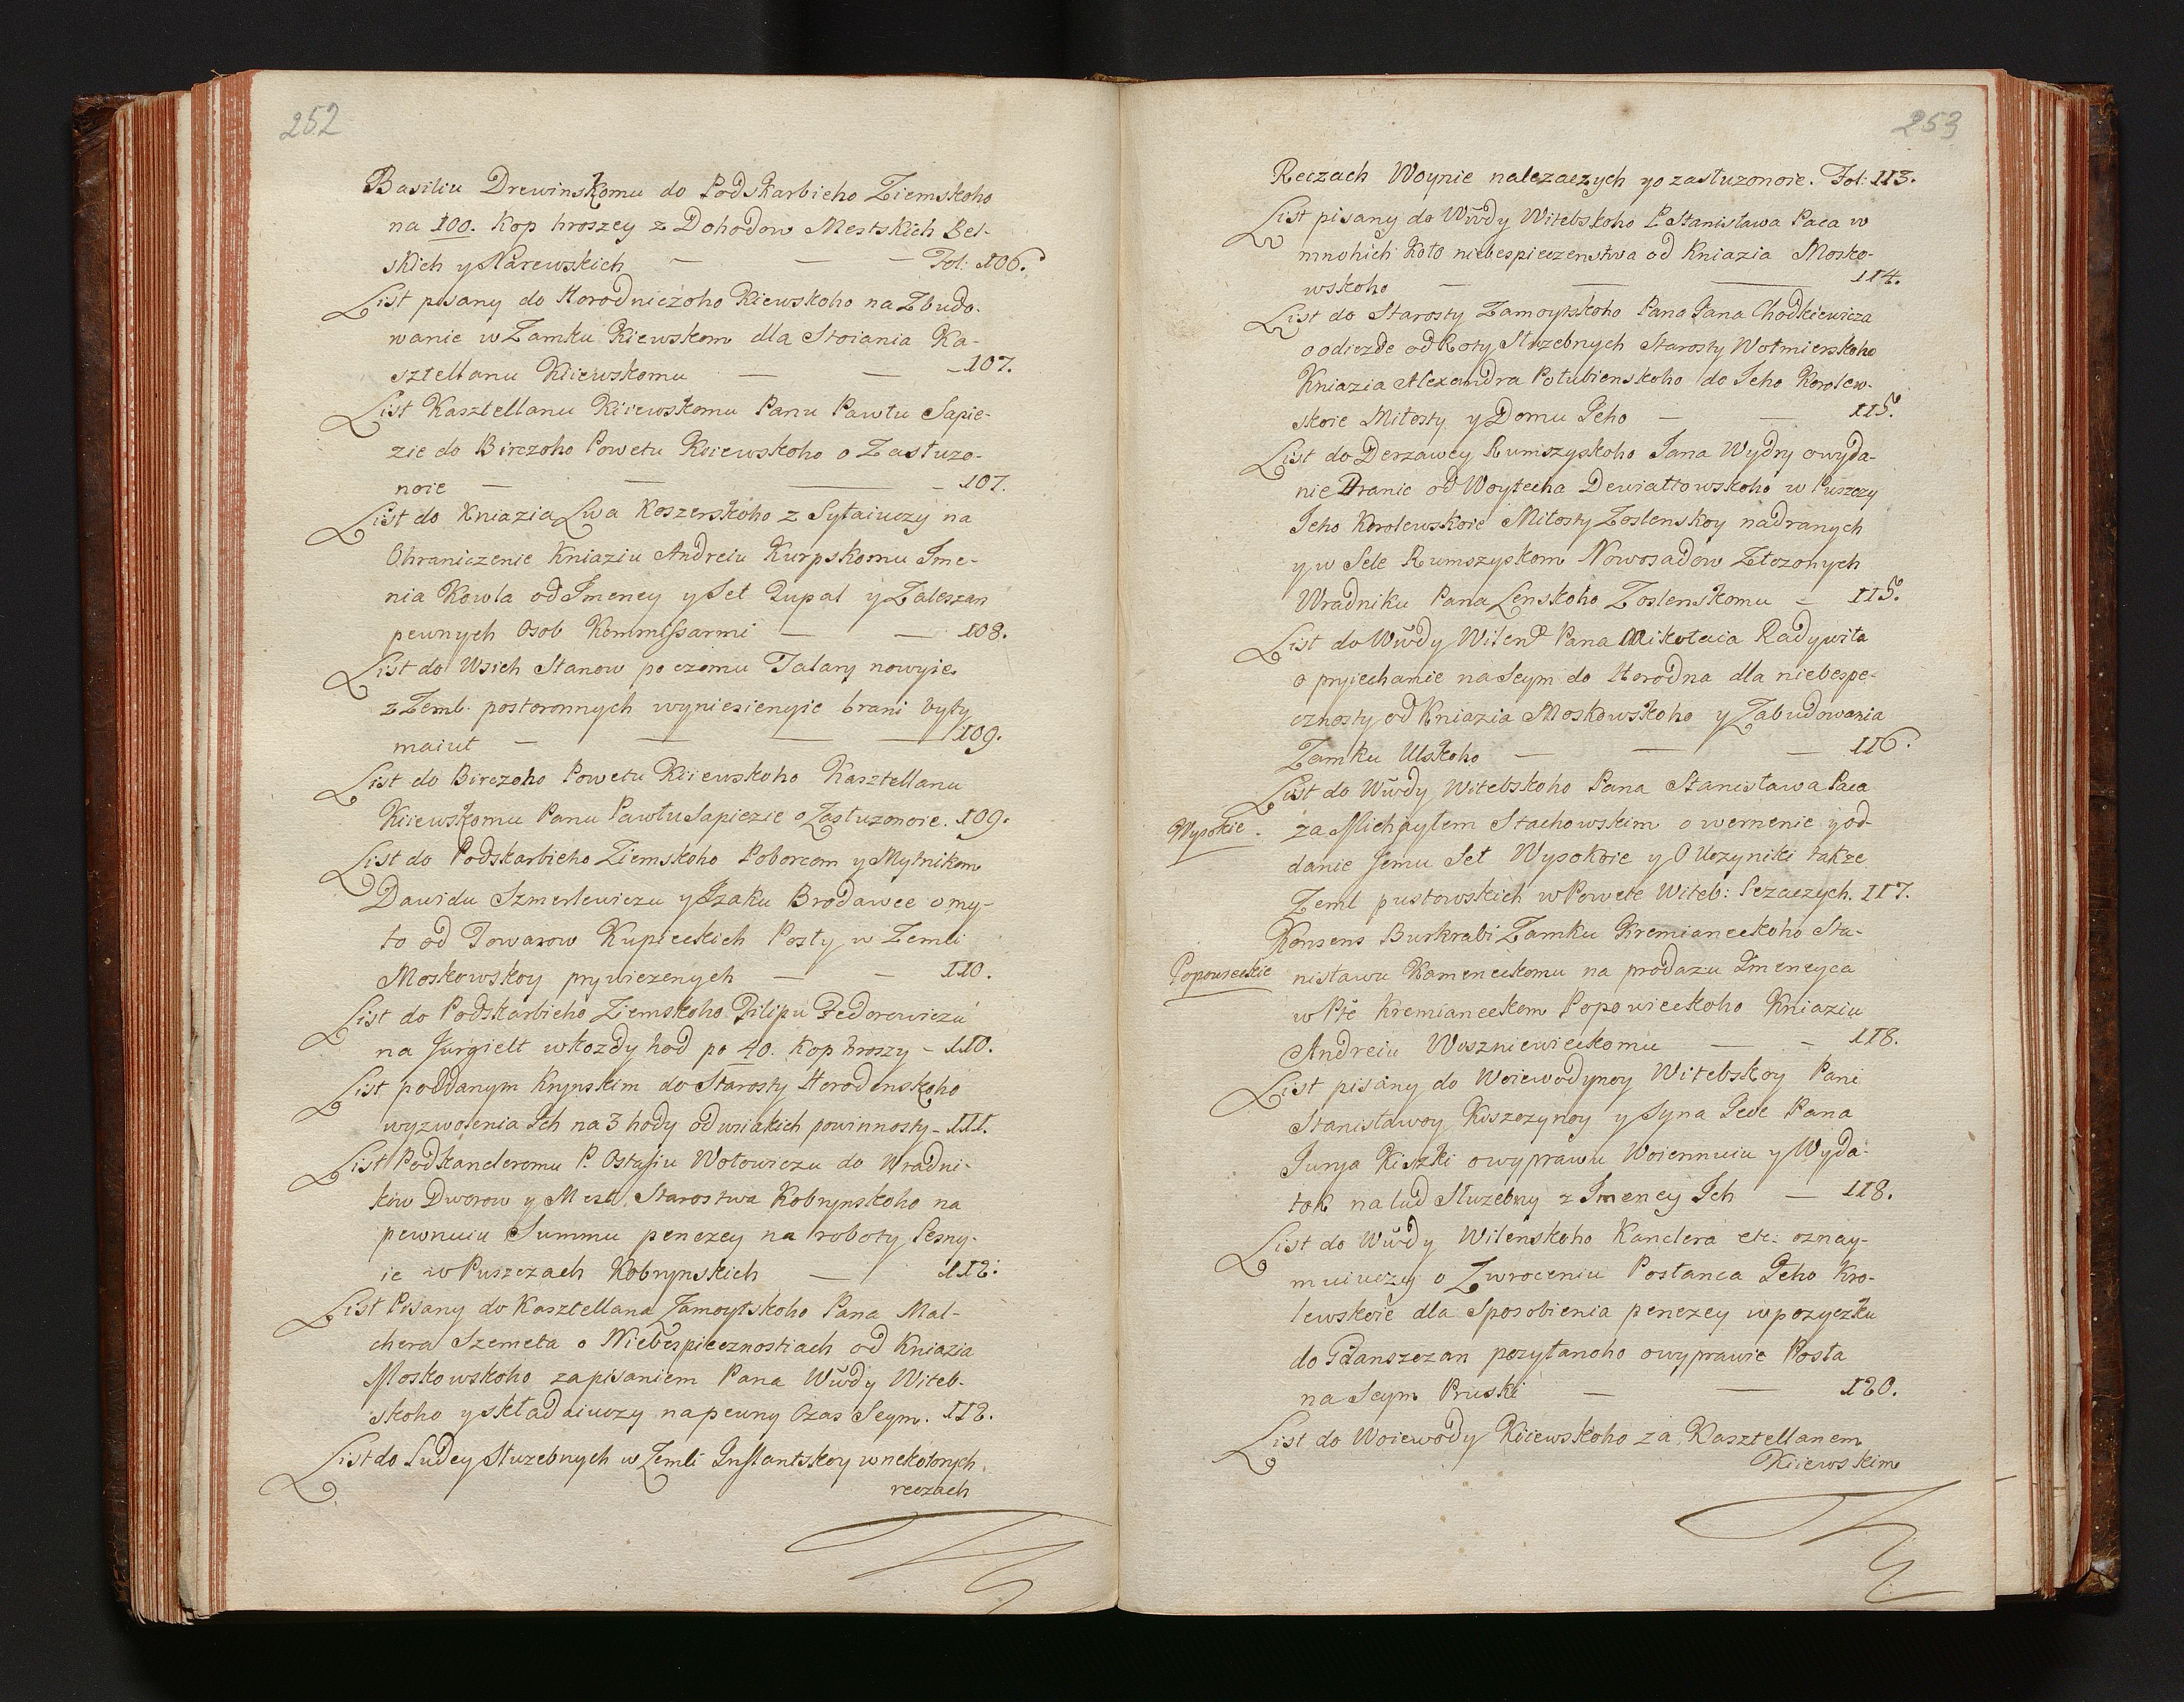 252
Basiliu Drewinskomu do Podskarbieho Ziemskoho
na 100. Kop hroszey z Dohodow Mestskich Bel-
skich y Narewskich — — — Fol: 106.
List pisany do Horodniczoho Kiewskoho na Zbudo-
wanie w Zamku Kiewskom dla Stoiania Ka-
sztellanu Kiiewskomu — — 107.
List Kasztellanu Kiiewskomu Panu Pawłu Sapie-
zie do Birczoho Powetu Kiiewskoho o Zasłuzo-
noie — — — 107.
List do Kniazia Lwa Koszerskoho z Syłaiuczy na
Ohraniczenie Kniaziu Andreiu Kurpskomu Ime-
nia Kowla od Imeney y Seł Dupał y Zaleszan
pewnych Osob Kommissarmi — — 108.
List do Wsich Stanow po czomu Talary nowyie
z Zeml. postoronnych wyniesienyie brani byty
maiut — — — 109.
List do Birczoho Powetu Kiiewskoho Kasztellanu
Kiiewskomu Panu Pawłu Sapiezie o Zasłuzonoie. 109.
List do Podskarbieho Ziemskoho Poborcom y Mytnikom
Dawidu Szmerlewiczu y Izaku Brodawce o my-
to od Towarow Kupieckich Posty w Zemli
Moskowskoy prywiezenych — — 110.
List do Podskarbieho Ziemskoho Filipu Fedorowiczu
na Jurgielt w kozdy hod po 40. Kop hroszy — 110.
List poddanym Krynskim do Starosty Horodenskoho
wyzwolenia Ich na 3 hody od wsiakich powinnosty — 111.
List Podkancleromu P. Ostafiu Wołowiczu do Wradni-
kow Dworow y Mest Starostwa Kobrynskoho na
pewnuiu Summu penezey na roboty Lesny-
ie w Puszczach Kobrynskich — 112.
List Pisany do Kasztellana Zamoytskoho Pana Mal-
chera Szemeta o Niebespiecznostiach od Kniazia
Moskowskoho zapisaniem Pana Wwdy Witeb-
skoho y składaiuczy na pewny Czas Seym. 112.
List do Ludey Słuzebnych w Zemli Inflantskoy w nekotorych
reczach
253
Reczach Woynie nalezaczych y o zasłuzonoie. Fol: 113.
List pisany do Wwdy Witebskoho P. Stanisława Paca w
mnohich koło niebespieczenstwa od Kniazia Mosko-
wskoho — — — 114.
List do Starosty Zamoytskoho Pana Jana Chodkiewicza
o odiezde od Roty Słuzebnych Starosty Wołmierskoho
Kniazia Alexandra Połubienskoho do Jeho Korolew-
skoie Miłosty y Domu Jeho — — 115.
List do Derzawcy Rumszyskoho Jana Wydry o wyda-
nie Dranic od Woytecha Dewiałtowskoho w Puszczy
Jeho Korolewskoie Miłosty Zoslenskoy nadranych
y w Sele Rumszyskom Nowosadow Złozonych
Wradniku Pana Lenskoho Zoslenskomu — 115.
List do Wwdy Wilen Pana Mikołaia Radywiła
o pryiechanie na Seym do Horodna dla niebespe-
cznosty od Kniazia Moskowskoho y Zabudowania
Zamku Ulskoho — — — 116.
List do Wwdy Witebskoho Pana Stanisława Paca
Wysokie. za Michayłem Stachowskim o wernenie y od-
danie Jemu Seł Wysokoie y O Uczyniki także
Zeml pustowskich w Powete Witeb: Lezaczych. 117.
Konsens Burkrabi Zamku Kremianeckoho Sta-
Popowieckie nisławu Kamenieckomu na prodazu Imeneyca
w Pte Kremianeckom Popowieckoho Kniaziu
Andreiu Weszniewieckomu — — 118.
List pisany do Woiewodynoy Witebskoy Pani
Stanisławoy Kiszczynoy y Syna Jeie Pana
Jurya Kiszki o wyprawu Woiennuiu y Wyda-
tok na lud Słuzebny z Imeney Ich — 118.
List do Wwdy Wilenskoho Kanclera etc: oznay-
muiuczy o Zwroceniu Posłanca Jeho Kro-
lewskoie dla Sposobienia penezey w pozyczku
do Gdanszczan posyłanoho o wyprawie Posła
na Seym Pruski — — 120.
List do Woiewody Kiiewskoho za Kasztellanem
Kiiewskim